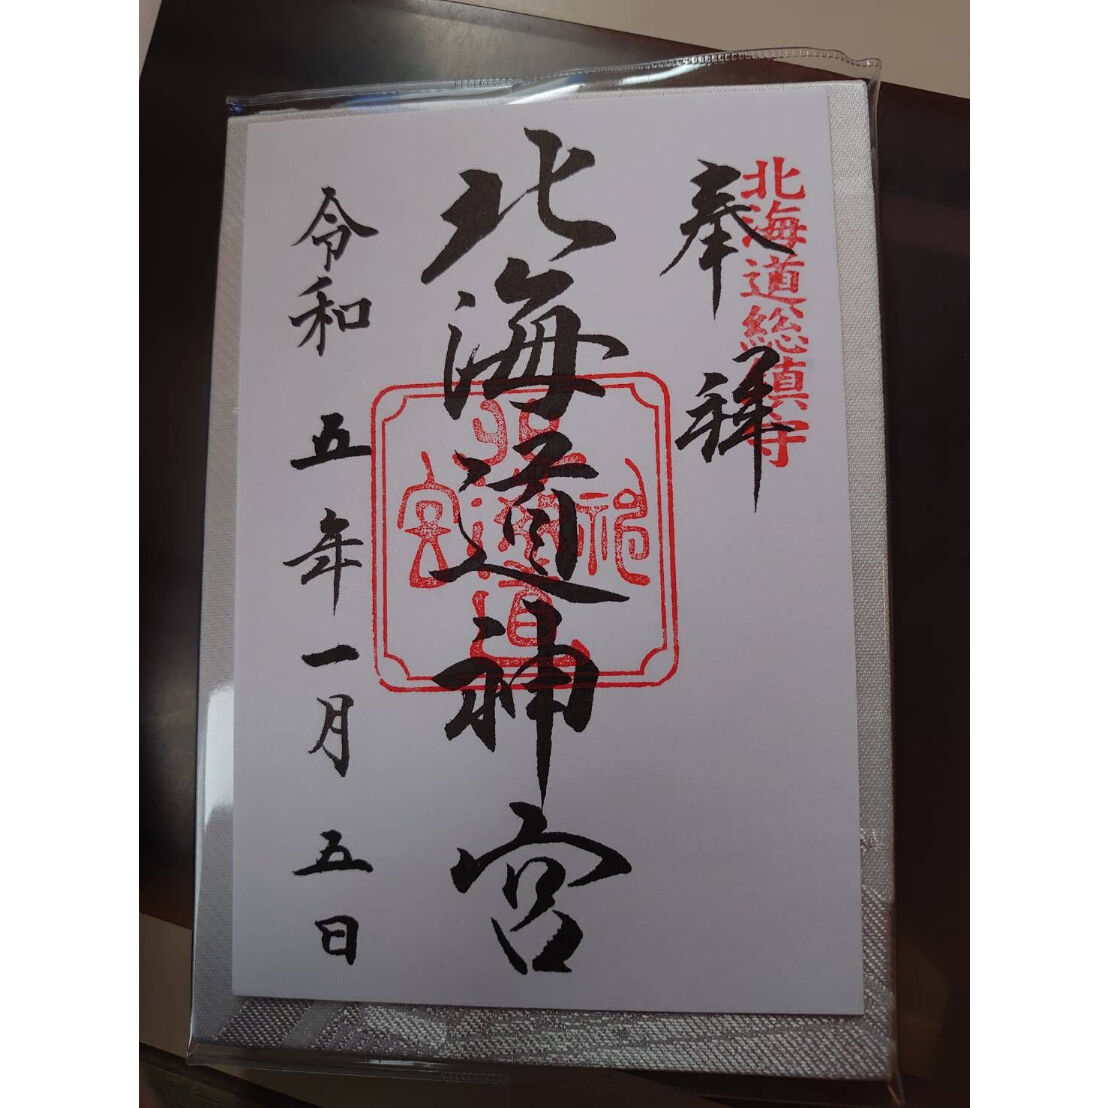 北海道総鎮守
奉拝
北海道神宮
令和五年一月五日